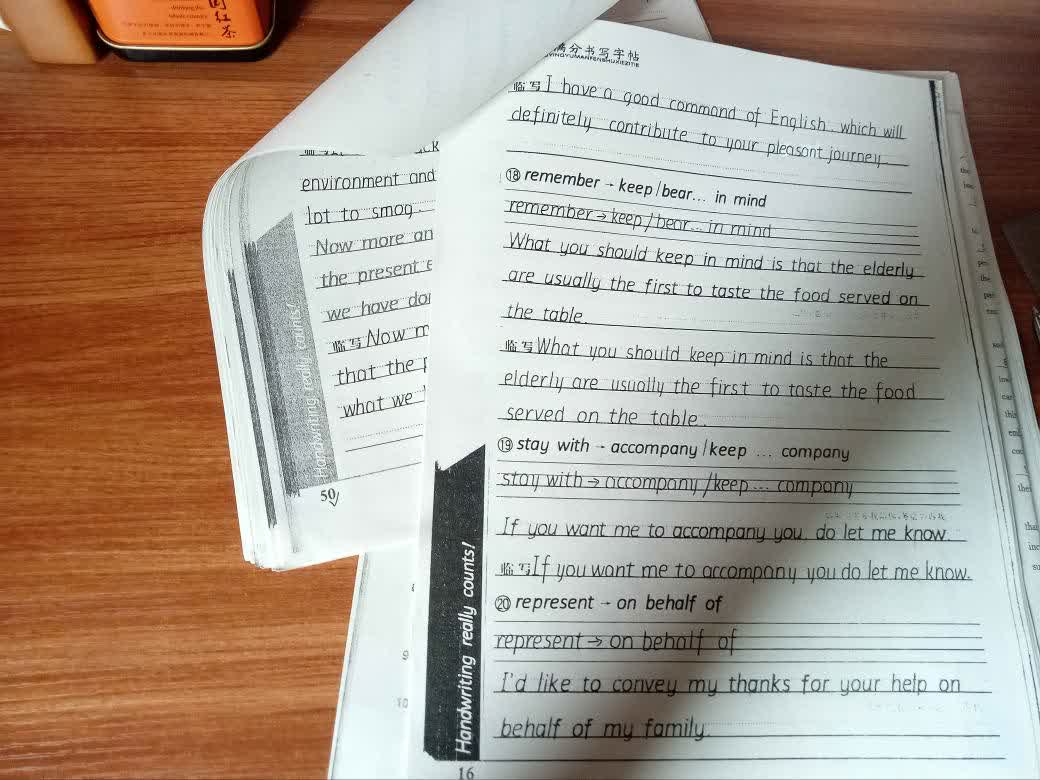 红茶
满分书写字帖
YINGYUMANFENSHUXIEZITIE
临写 I have a good command of English, which will
definitely contribute to your pleasant journey.
⑱ remember → keep/bear... in mind
remember → keep/bear... in mind
What you should keep in mind is that the elderly
are usually the first to taste the food served on
the table.
临写 What you should keep in mind is that the
elderly are usually the first to taste the food
served on the table.
⑲ stay with → accompany/keep ... company
stay with → accompany/keep ... company
If you want me to accompany you, do let me know.
临写 If you want me to accompany you do let me know.
⑳ represent → on behalf of
represent → on behalf of
I'd like to convey my thanks for your help on
behalf of my family.
Handwriting really counts!
16
environment and
lot to smog.
Now more an
the present e
we have do
临写 Now m
that the p
what we
Handwriting really counts!
50
9
10